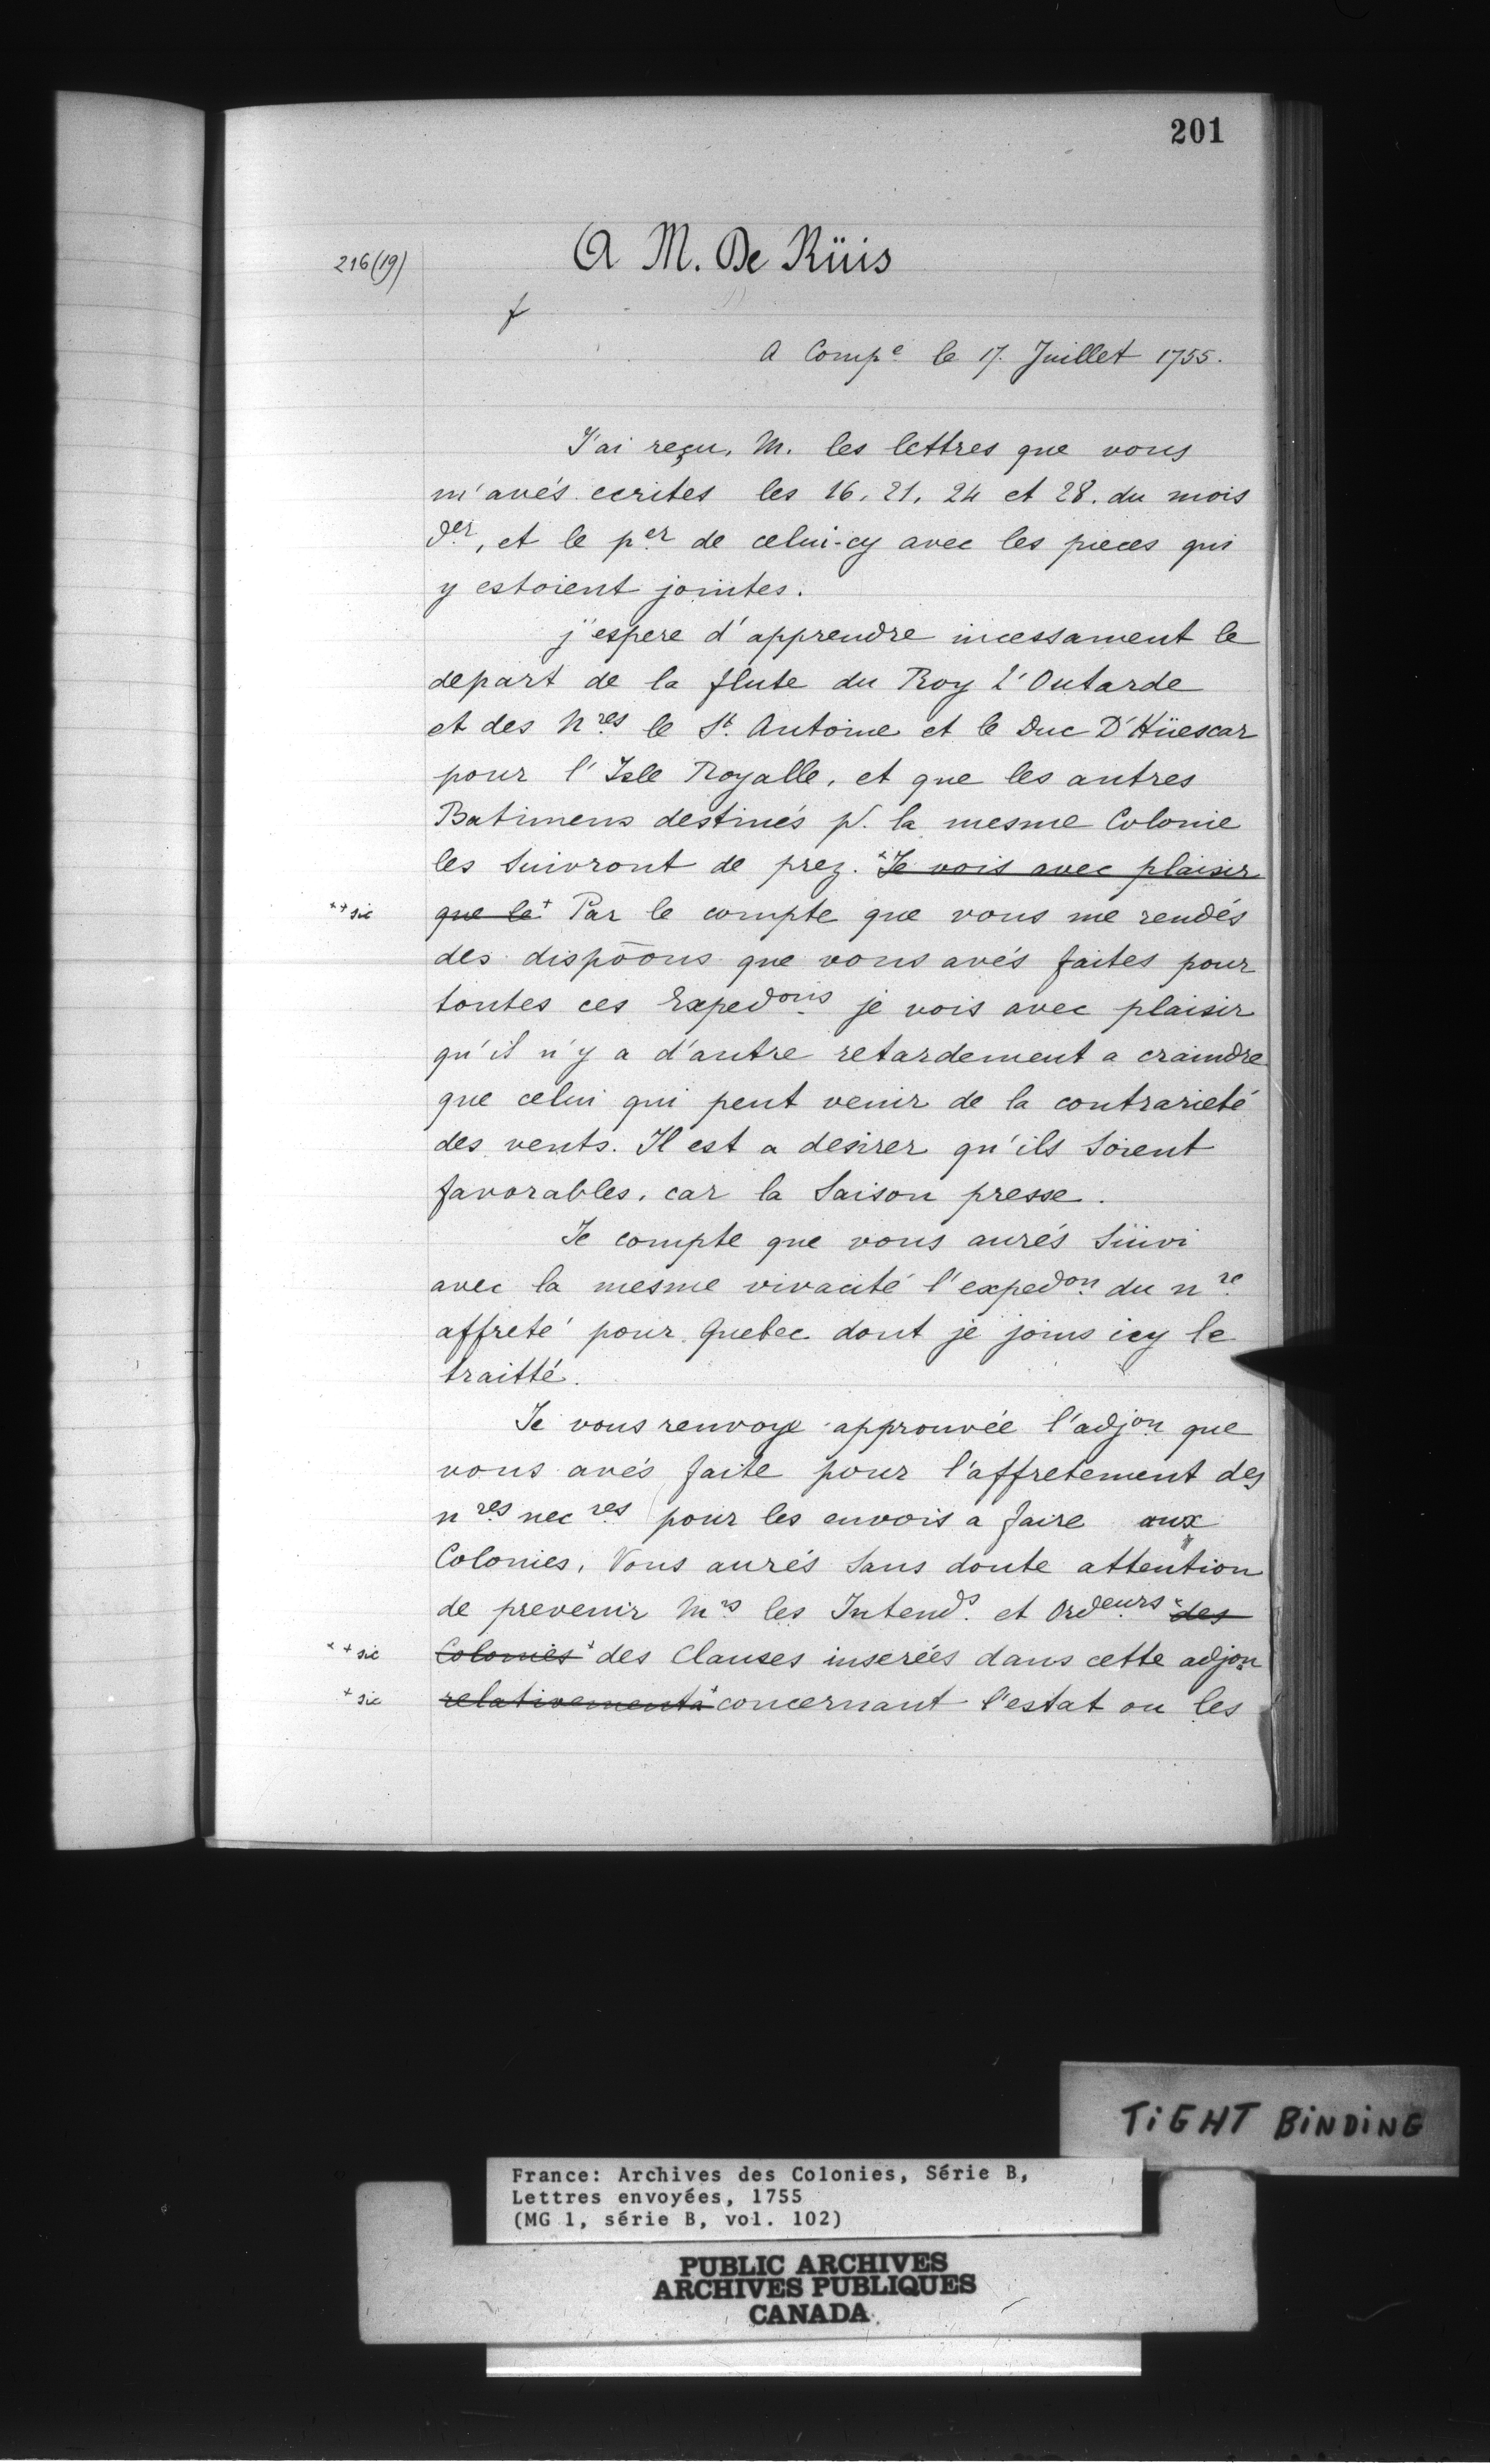 201
216 (19)
A M. De Rüis
f
A Compe le 17. Juillet 1755.
J'ai reçu, M. les lettres que vous
m'avés ecrites les 16, 21, 24 et 28. du mois
der, et le per de celui-cy avec les pieces qui
y estoient jointes.
j'espere d'apprendre incessament le
depart de la flute du Roy L'Outarde
et des Nres le St. Antoine et le Duc D'Hüescar
pour l'Isle Royalle, et que les autres
Batimens destinés pr. la mesme Colonie
les suivront de prez. +Je vois avec plaisir
++ sic
que le+ Par le compte que vous me rendés
des dispõons que vous avés faites pour
toutes ces Expedons je vois avec plaisir
qu'il n'y a d'autre retardement a craindre
que celui qui peut venir de la contrarieté
des vents. Il est a desirer qu'ils soient
favorables, car la saison presse.
Je compte que vous aurés süivi
avec la mesme vivacité l'expedon du nre
affreté pour Quebec dont je joins icy le
traitté.
Je vous renvoye approuvée l'adjon que
vous avés faite pour l'affretement des
nres necres pour les envois a faire aux
Colonies, Vous aurés sans doute attention
de prevenir Mrs les Intends. et Ordeurs +des
++ sic
Colonies+ des Clauses inserées dans cette adjon
+ sic
relativement à+ concernant l'estat ou les
TIGHT BINDING
France: Archives des Colonies, Série B,
Lettres envoyées, 1755
(MG 1, série B, vol. 102)
PUBLIC ARCHIVES
ARCHIVES PUBLIQUES
CANADA